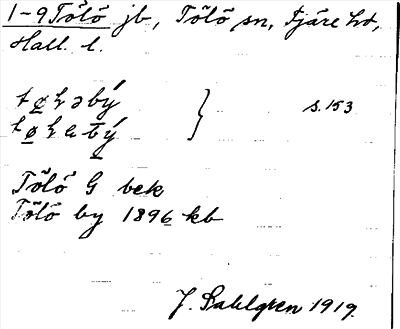 1-9 Tölö jb, Tölö sn, Fjäre hd,
Hall. l.
tøhəbý } s. 153
tøhabý
Tölö G bek
Tölö by 1896 kb
J. Sahlgren 1919.